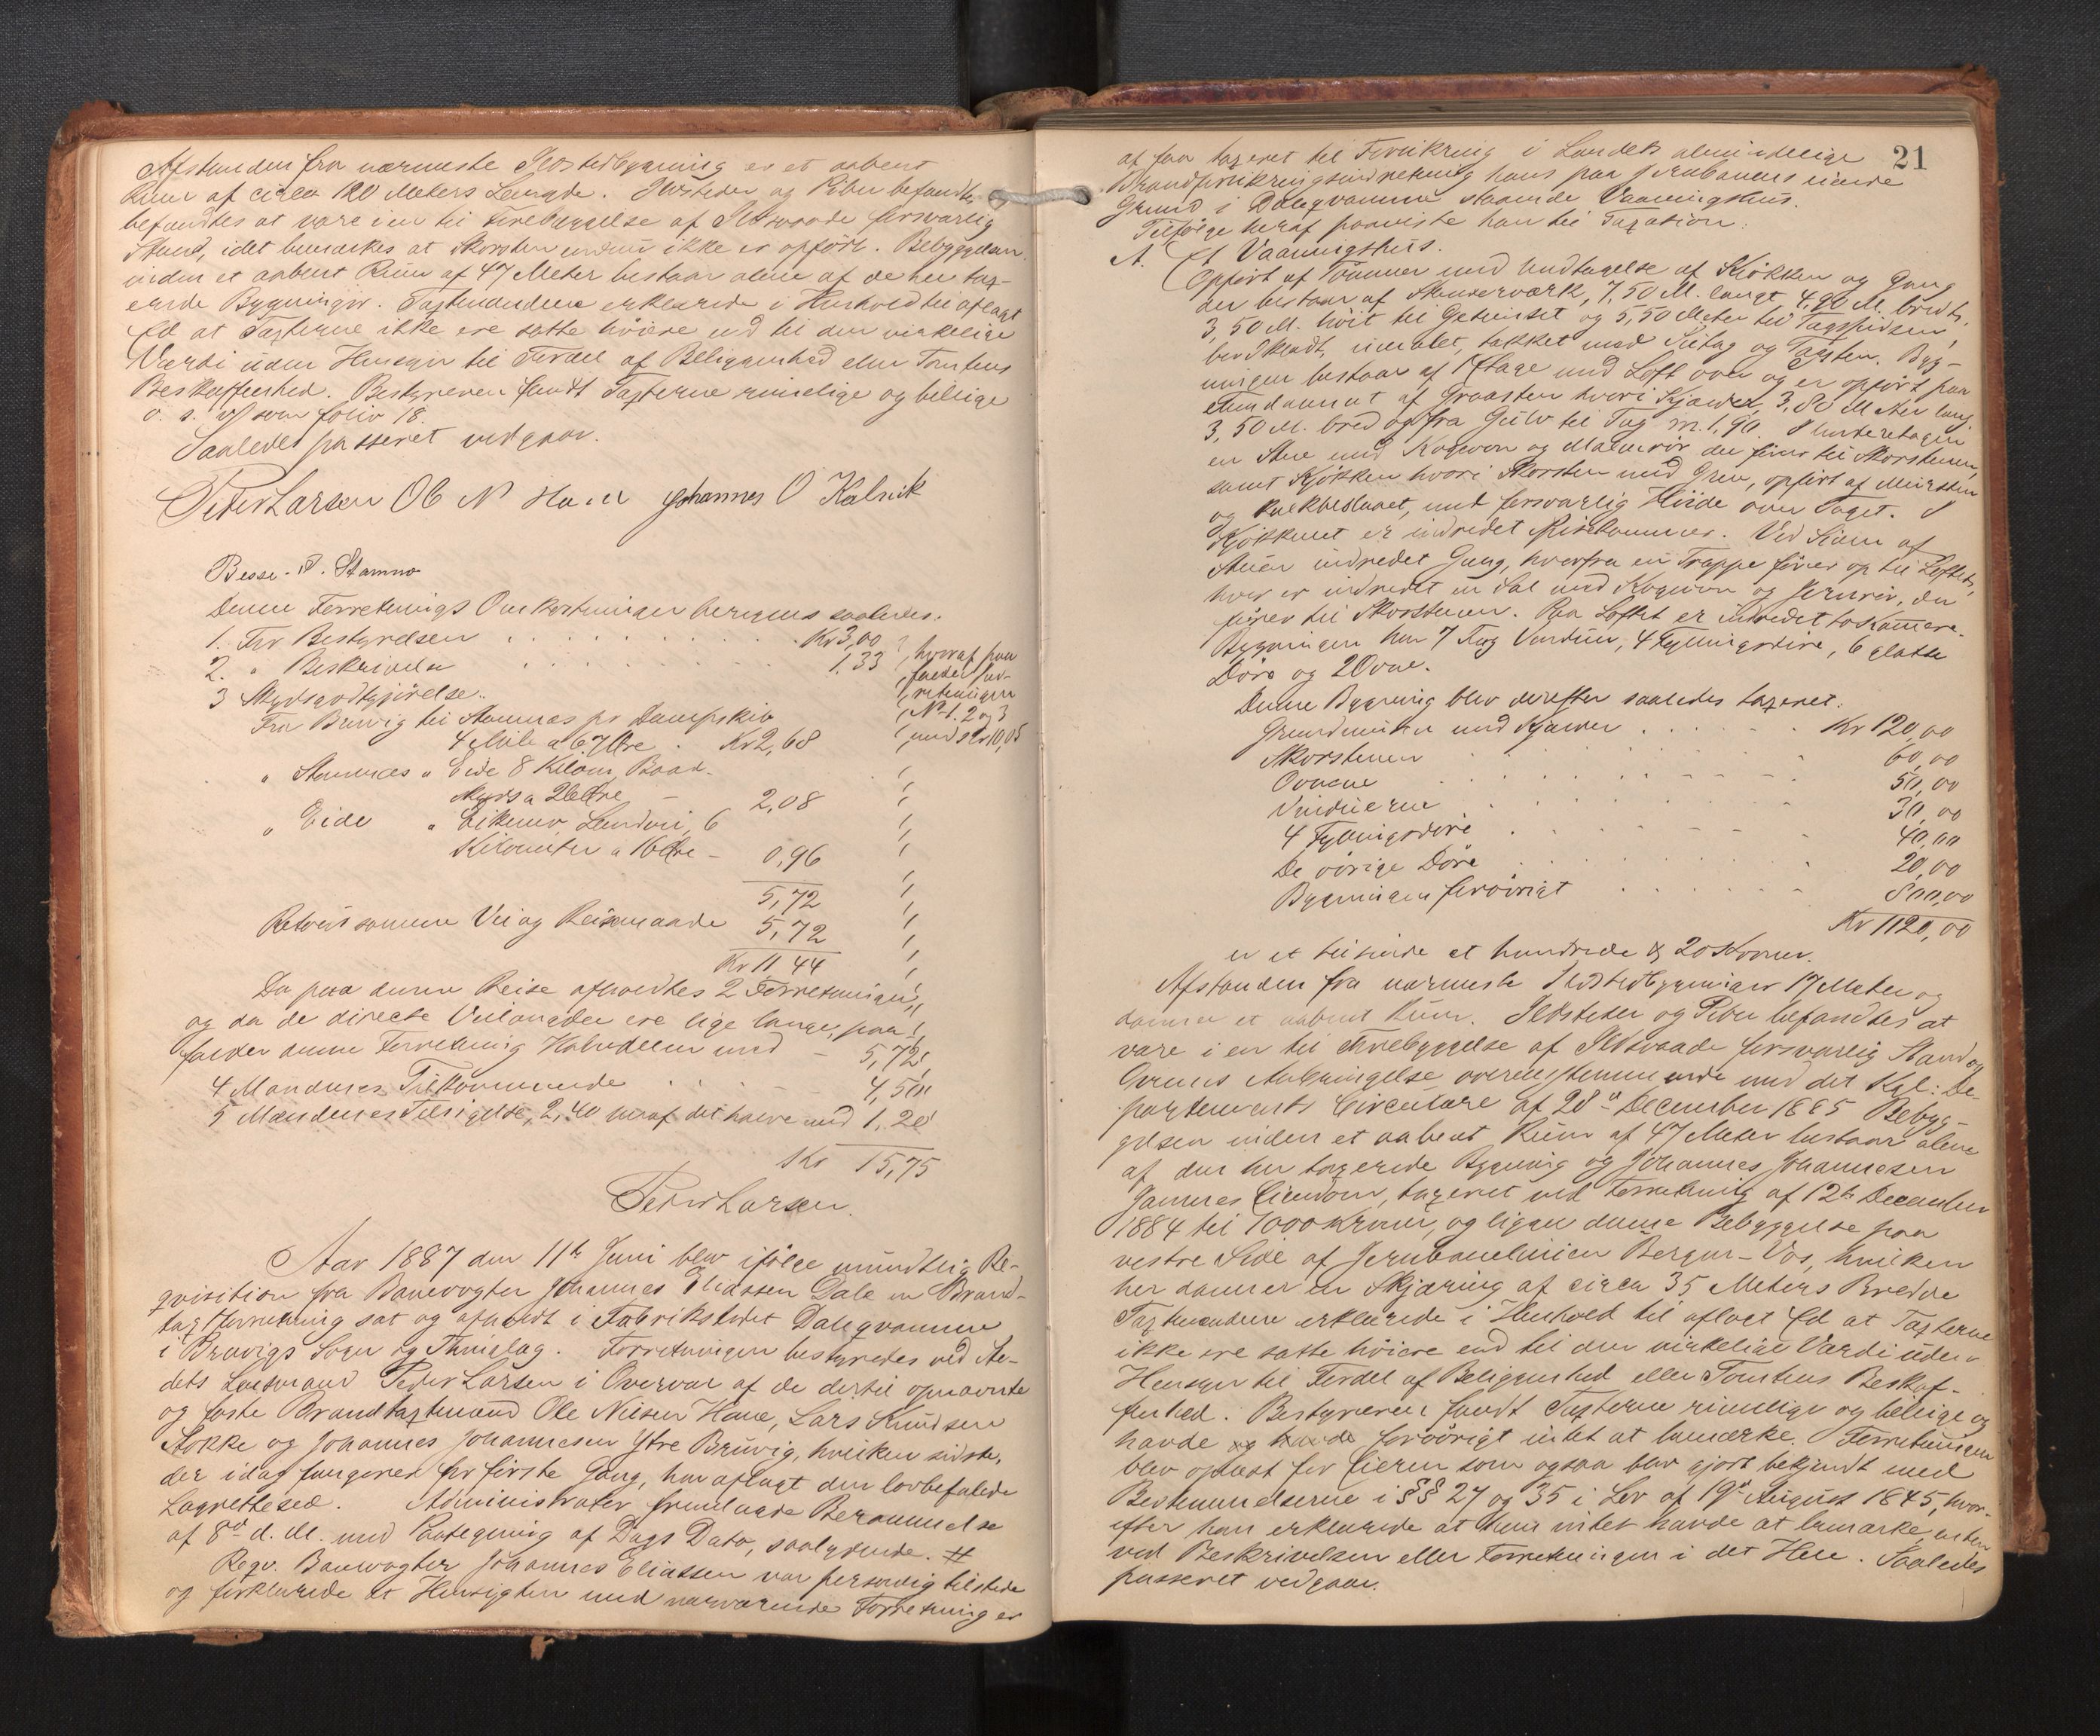 Afstanden fra nærmeste Ildstedbygning er et aabent
Rum af circa 120 Meters Længde. Ildsteder og Piber befandtes
befandtes at være i en til Forebyggelse af Ildsvaade forsvarlig
Stand, idet bemærkes at Skorsten endnu ikke er opført. Bebyggelsen
inden et aabent Rum af 47 Meter bestaar alene af de her tax-
erede Bygninger. Taxtmændene erklærede i Henhold til aflagt
Ed at Taxterne ikke ere satte høiere end til den virkelige
Værdi uden Hensyn til Fordel af Beliggenhed eller Tomtens
Beskaffenhed. Bestyreren fandt Taxterne rimelige og billige
o. s. v. som folio 18.
Saaledes passeret vedgaar.
Peder Larsen O N Johannes O Kalvik
Denne Forretnings Omkostninger beregnes saaledes.
1. For Bestyrelsen Kr 3,00
2. " Beskrivelse 1.33
hvoraf paa
falder for-
retningen
No 1. 2 og 3
med Kr 10,05
3 Skydsgodtgjørelse.
Fra Bruvig til Stamnes pr Dampskib
4 Mile a 67 Øre Kr 2,68
" Stamnes " Eide 8 Kilom. Baad-
skyds a 26 Øre - 2,08
" Eide " Eikemo Landvei, 6
Kilometer a 16 Øre - 0,96
5,72
Retour samme Vei og Reisemaade 5,72
Kr 11 44
Da paa denne Reise afholdtes 2 Forretninger,
og da de directe Veilængder ere lige lange, paa-
falder denne Forretning Halvdelen med - 5,72
4 Mændenes Tilkommende - 4,50
5 Mændenes Tilsigelse, 2,40 hvoraf det halve med 1,20
Kr 15,75
Peder Larsen.
Aar 1887 den 11te Juni blev ifølge mundtlig Re-
qvisition fra Banevogter Johannes Eliassen Dale en Brand-
taxtforretning sat og afholdt i Fabrikstedet Daleqvammen
i Bruvigs Sogn og Thinglag. Forretningen bestyredes ved Ste-
dets Lensmand Peder Larsen i Overvær af de dertil opnævnte
og faste Brandtaxtmænd Ole Nilsen Hane, Lars Knudsen
Stokke og Johannes Johannesen Ytre Bruvig, hvilken sidste,
der idag fungerer for første Gang, har aflagt den lovbefalede
Lagrettesed. Administrator fremlagde Berammelse
af 8de d. M. med Paategning af Dags Dato, saalydende. #
Reqv. Banevogter Johannes Eliassen var personlig tilstede
og forklarede at Hensigten med nærværende Forretning er
21
at faa taxeret til Forsikring i Landets almindelige
Brandforsikringsindretning hans paa Jernbanens eiende
Grund i Daleqvammen staaende Vaaningshus.
Tilfølge heraf paaviste han til Taxation:
A. Et Vaaningshus.
Opført af Tømmer med Undtagelse af Kjøkken og Gang
der bestaar af Stenderværk, 7,50 M. langt, 4,90 M. bredt,
3,50 M. høit til Gesimset og 5,50 Meter til Tagspidsen,
bordklædt, umalet, tækket med Sutag og Tagsten. Byg-
ningen bestaar af 1 Etage med Loft over og er opført paa
Fundament af Graasten hvori Kjælder 3,80 Meter lang
3,50 M. bred og fra Gulv til Tag m. 1,90. I Underetagen
en Stue med Kogeovn og Malmrør der fører til Skorstenen,
samt Kjøkken hvori Skorsten med Grue, opført af Mursten
og kalkbeslaaet, med forsvarlig Høide over Taget. I
Kjøkkenet er indredet Spisekammer. Ved Siden af
Stuen indredet Gang, hvorfra en Trappe fører op til Loftet,
hvor er indredet en Sal med Kogeovn og Jernrør, der
fører til Skorstenen. Paa Loftet er indredet to Kamere.
Bygningen har 7 Fag Vinduer, 4 Fyldingsdøre, 6 glatte
Døre og 2 Ovne.
Denne Bygning blev derefter saaledes taxeret:
Grundmuren med Kjælder Kr 120,00
Skorstenen 60,00
Ovnene 50,00
Vinduerne 30,00
4 Fyldingsdøre 40,00
De øvrige Døre 20,00
Bygningen forøvrigt 800,00
Kr 1120,00
er et tusinde et hundrede & 20 Kroner.
Afstanden fra nærmeste Ildstedbygninger 17 Meter og
danner et aabent Rum. Ildsteder og Piber befandtes at
være i en til Forebyggelse af Ildsvaade forsvarlig Stand og
Ovnenes Anbringelse overensstemmende med det Kgl: De-
partements Circulære af 28de December 1885. Bebyg-
gelsen inden et aabent Rum af 47 Meter bestaar alene
af den her taxerede Bygning og Johannes Johannesen
Jamnes Eiendom, taxeret ved Forretning af 12te December
1884 til 1000 Kroner, og ligger denne Bebyggelse paa
vestre Side af Jernbanelinien Bergen-Vos, hvilken
her danner en Skjæring af circa 35 Meters Bredde
Taxtmændene erklærede i Henhold til aflagt Ed at Taxterne
ikke ere satte høiere end til den virkelige Værdi uden
Hensyn til Fordel af Beliggenhed eller Tomtens Beskaf-
fenhed. Bestyreren fandt Taxterne rimelige og billige og
havde og havde forøvrigt intet at bemærke. Forretningen
blev oplæst for Eieren som ogsaa blev gjort bekjendt med
Bestemmelserne i §§ 27 og 35 i Lov af 19de August 1845, hvor-
efter han erklærede at han intet havde at bemærke, enten
ved Beskrivelsen eller Forretningen i det Hele. Saaledes
passeret vedgaar.